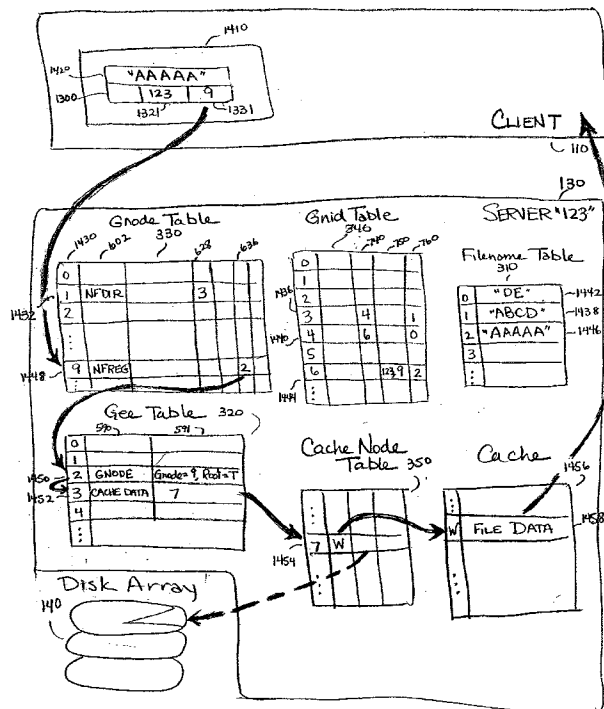 1410
1420
"AAAAA"
1300
123 9
1321 1331
CLIENT
110
130
SERVER "123"
Gnode Table
1430 602 330 628 636
0
1432 1 NFDIR 3
2
1448 9 NFREG 2
⋮
Gnid Table
340 740 750 760
0
1
1436 2
3 4 1
1440 4 6 0
5
1444 6 123,9 2
⋮
Filename Table
310
0 "DE" 1442
1 "ABCD" 1438
2 "AAAAA" 1446
3
⋮
Gee Table 320
590 591
0
1
1450 2 GNODE Gnode=9, Root=T
1452 3 CACHE DATA 7
4
⋮
Cache Node
Table 350
⋮
1454 7 W
⋮
Cache
1456
⋮
W FILE DATA 1458
⋮
Disk Array
140